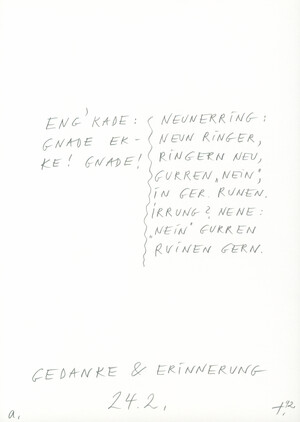 ENG' KADE:
GNADE EK-
KE! GNADE!
NEUNERRING:
NEUN RINGER,
RINGERN NEU,
GURREN „NEIN“,
IN GER. RUNEN.
IRRUNG? NENE:
„NEIN“ GURREN
RUINEN GERN.
GEDANKE & ERINNERUNG
24.2.
a.